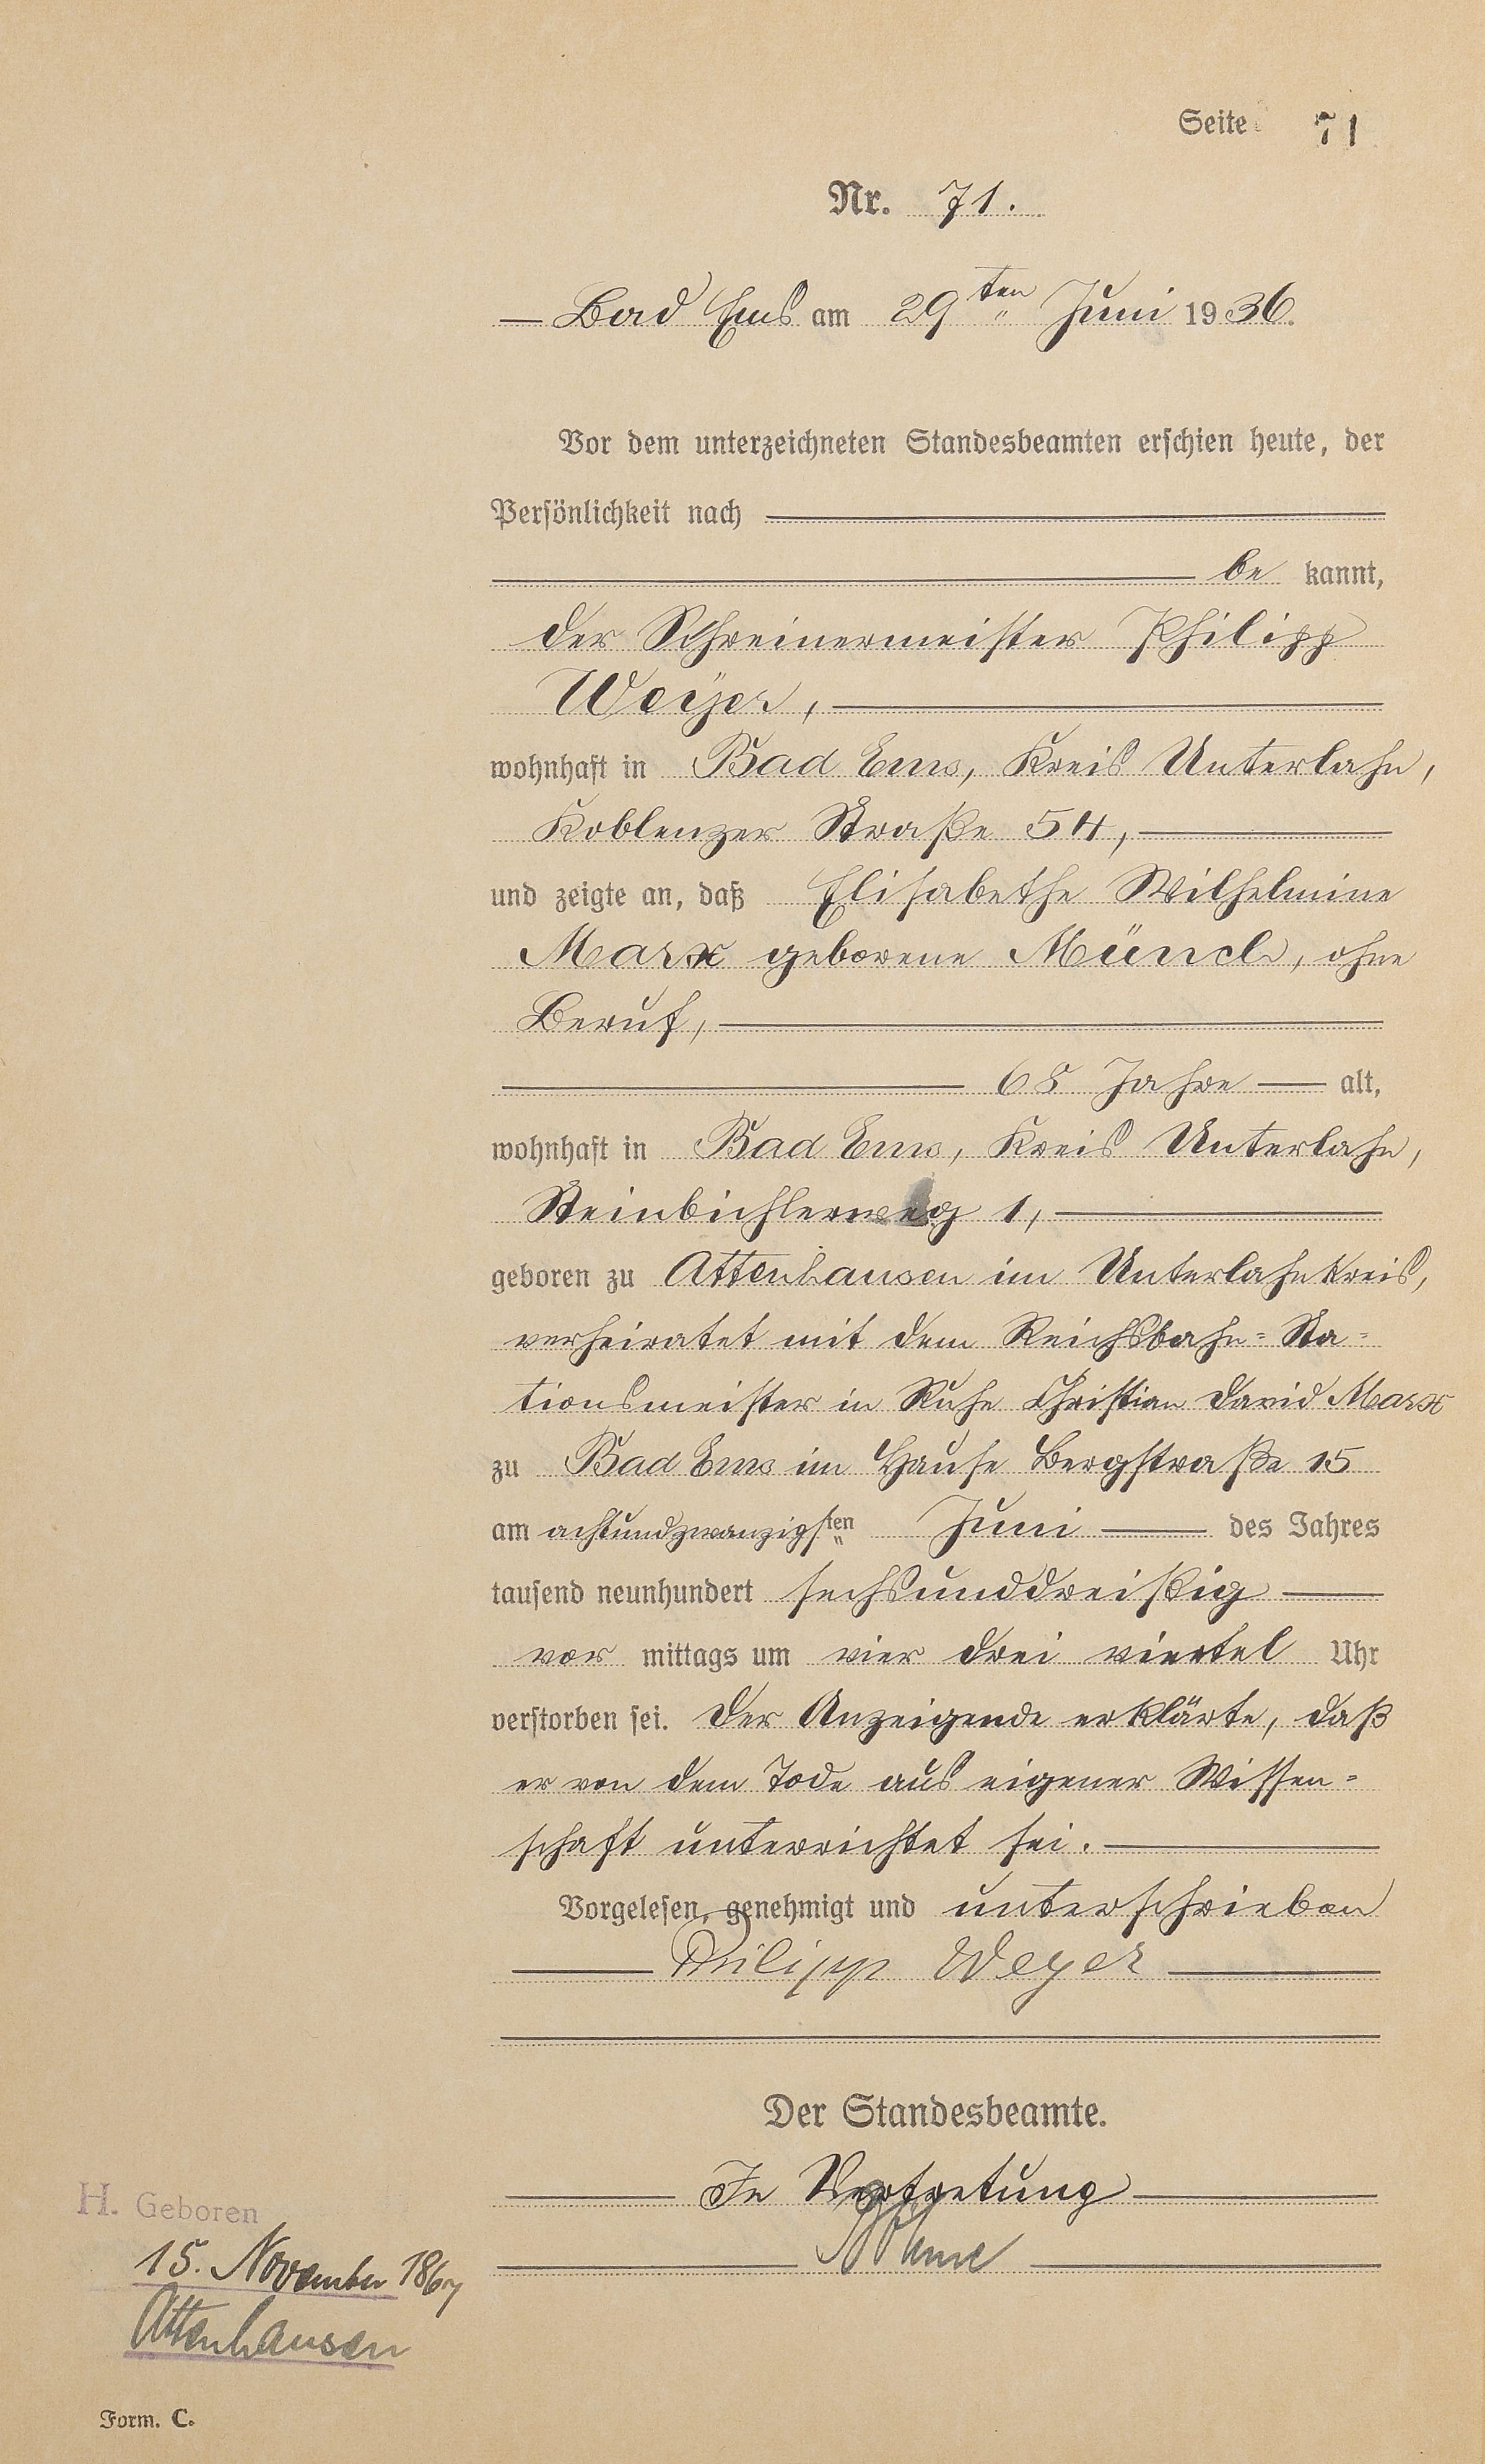 Seite 71
Nr. 71.
Bad Ems am 29ten Juni 1936.
Vor dem unterzeichneten Standesbeamten erschien heute, der
Persönlichkeit nach
be kannt,
der Schreinermeister Philipp
Weyer,
wohnhaft in Bad Ems, Kreis Unterlahn,
Koblenzer Straße 54,
und zeigte an, daß Elisabethe Wilhelmine
Marx geborene Münch, ohne
Beruf,
68 Jahre alt,
wohnhaft in Bad Ems, Kreis Unterlahn,
Steinbichlerweg 1,
geboren zu Attenhausen im Unterlahnkreis,
verheiratet mit dem Reichsbahn=Sta=
tionsmeister in Ruhe Christian David Marx
zu Bad Ems im Hause Bergstraße 15
am achtundzwanzigsten Juni des Jahres
tausend neunhundert sechsunddreißig
vor mittags um vier drei viertel Uhr
verstorben sei. Der Anzeigende erklärte, daß
er von dem Tode aus eigener Wissen=
schaft unterrichtet sei.
Vorgelesen, genehmigt und unterschrieben
Philipp Weyer
Der Standesbeamte.
In Vertretung
H. Geboren
15. November 1867
Attenhausen
Form. C.